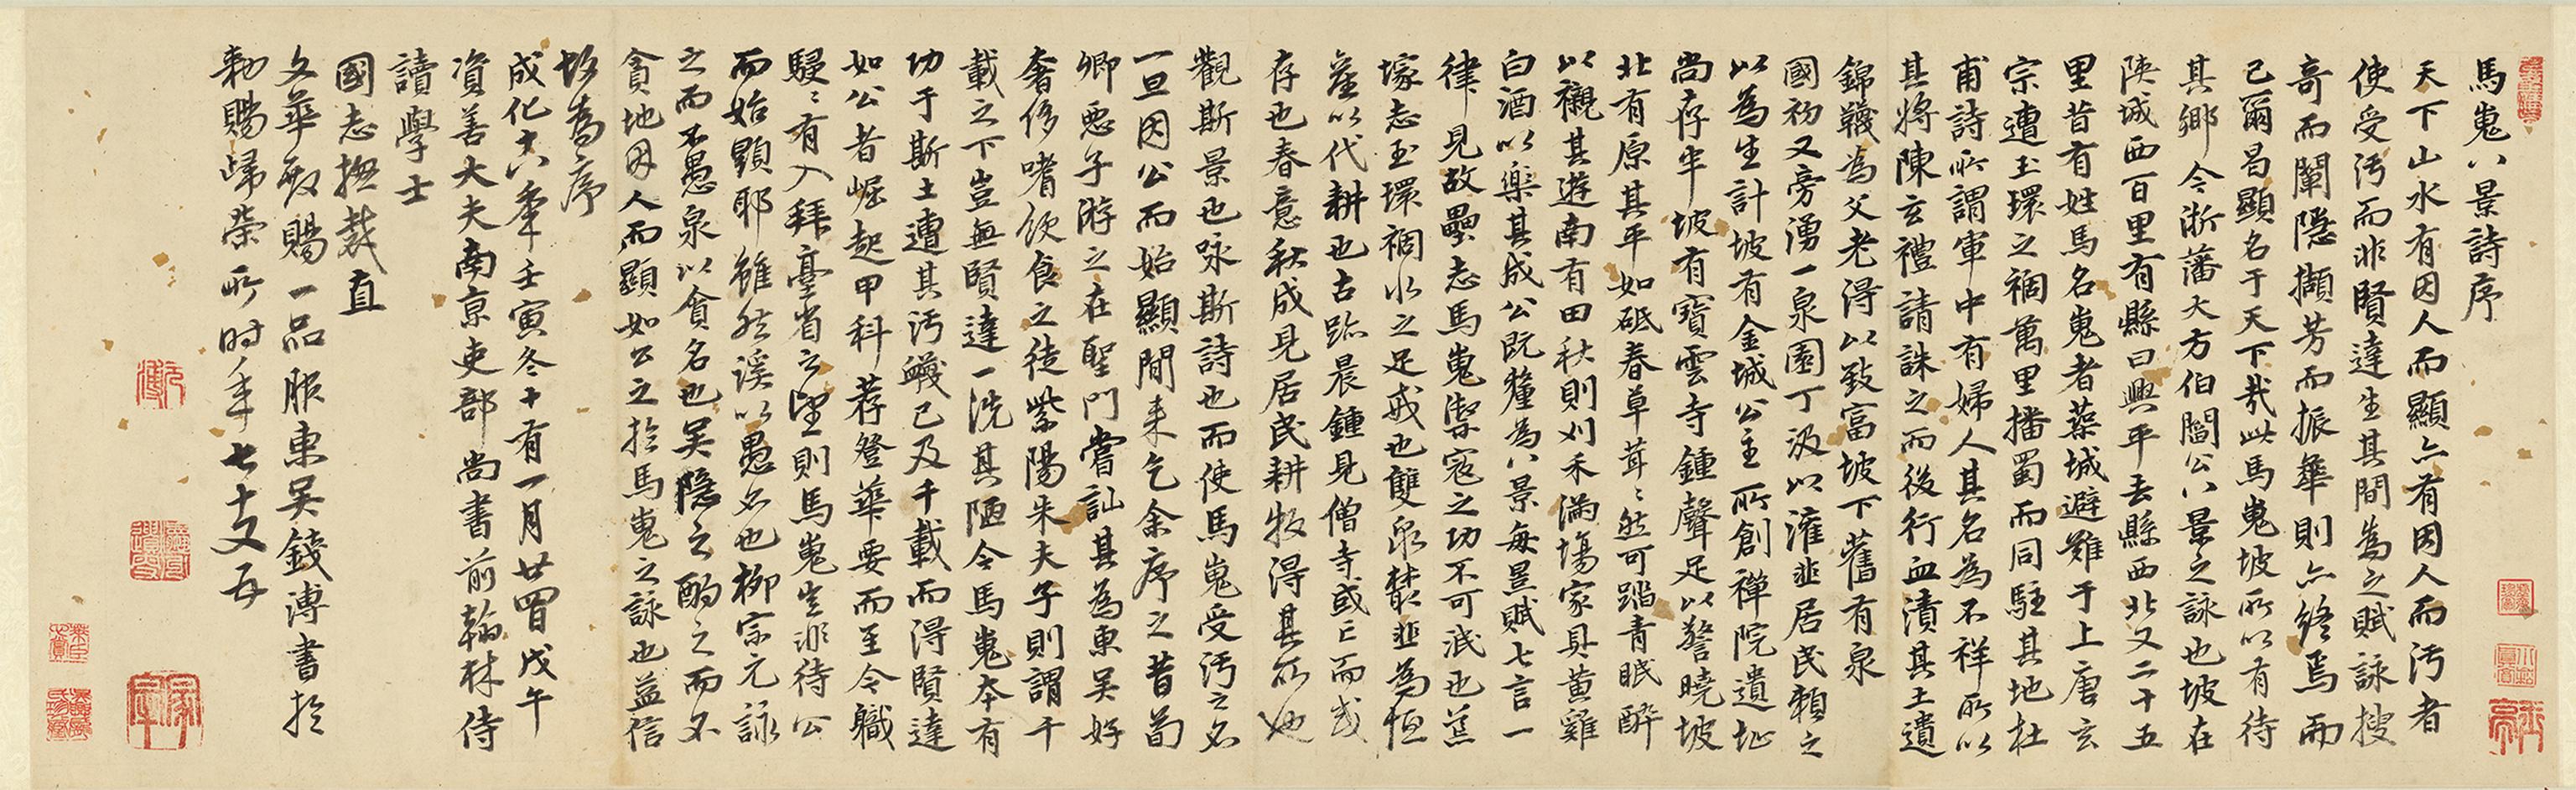 馬嵬八景詩序
天下山水有因人而顯亦有因人而汚者
使受汚而非賢達生其間為之賦詠搜
奇而闡隱擷芳而振華則亦終焉而
已爾曷顯名于天下哉此馬嵬坡所以有待
其鄉今浙藩大方伯閻公八景之詠也坡在
陝城西百里有縣曰興平去縣西北又二十五
里昔有姓馬名嵬者築城避難于上唐玄
宗遭玉環之禍萬里播蜀而同駐其地杜
甫詩所謂軍中有婦人其名為不祥所以
其將陳玄禮請誅之而後行血漬其土遺
錦韈為父老得以致富坡下舊有泉
國初又旁湧一泉園丁汲以灌韭居民賴之
以為生計坡有金城公主所創禪院遺址
尚存半坡有寶雲寺鍾聲足以警曉坡
北有原其平如砥春草茸〻然可踏青眠醉
以襯其遊南有田秋則刈禾滿場家具黃雞
白酒以樂其成公既釐為八景每景賦七言一
律見故壘志馬嵬禦寇之功不可泯也
塚志玉環禍水之足戒也雙泉鬻韭為恒
產以代耕也古跡晨鍾見僧寺或亡而或
存也春意秋成見居民耕牧得其所也
觀斯景也咏斯詩也而使馬嵬受汚之名
一旦因公而始顯間来乞余序之昔荀
卿惡子游之在聖門嘗訕其為東吳好
奢侈嗜飲食之徒紫陽朱夫子則謂千
載之下豈無賢達一洗其陋今馬嵬本有
功于斯土遭其汚衊已及千載而得賢達
如公者崛起甲科荐登華要而至今職
駸〻有入拜臺省之望則馬嵬豈非待公
而始顯耶雖然溪以愚名也柳宗元詠
之而不愚泉以貪名也吳隱之酌之而不
貪地因人而顯如公之於馬嵬之詠也益信
故為序
成化十八年壬寅冬十有一月廿四日戊午
資善大夫南京吏部尚書前翰林侍
讀學士
國志摠裁直
文華殿賜一品服東吳錢溥書於
勑賜歸榮所時年七十又五